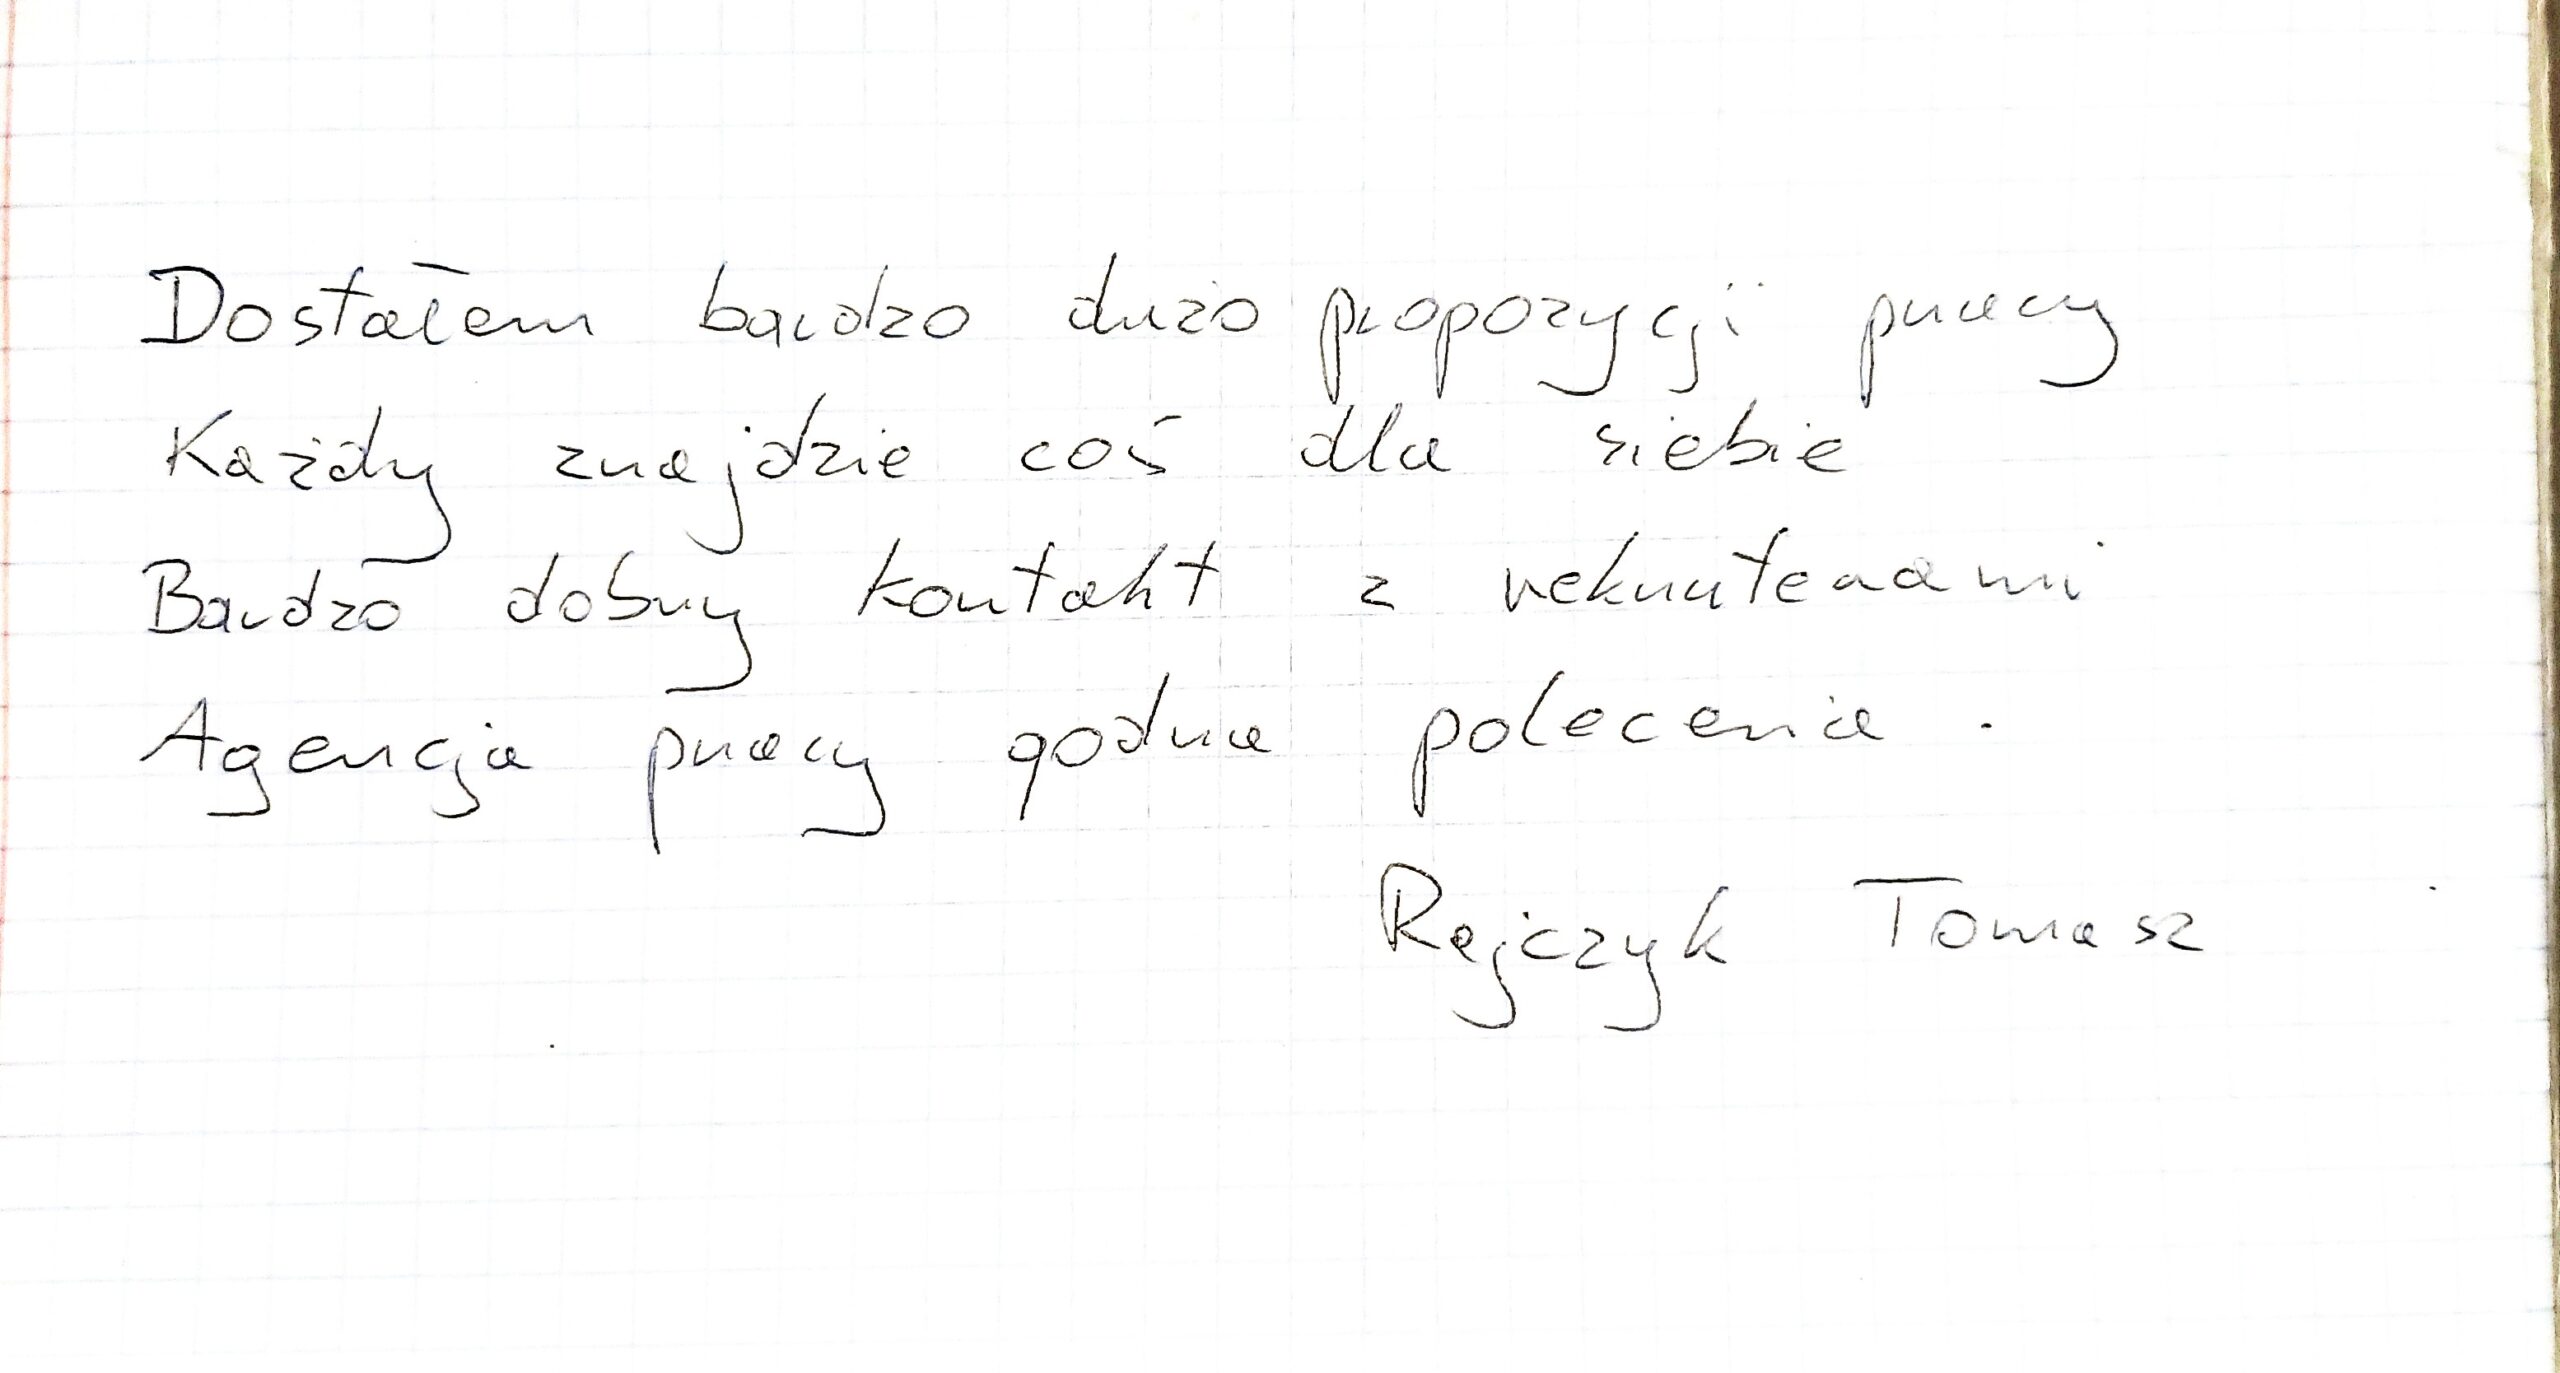 Dostałem bardzo dużo propozycji pracy
Każdy znajdzie coś dla siebie
Bardzo dobry kontakt z rekruterami
Agencja pracy godna polecenia.
Rajczyk Tomasz